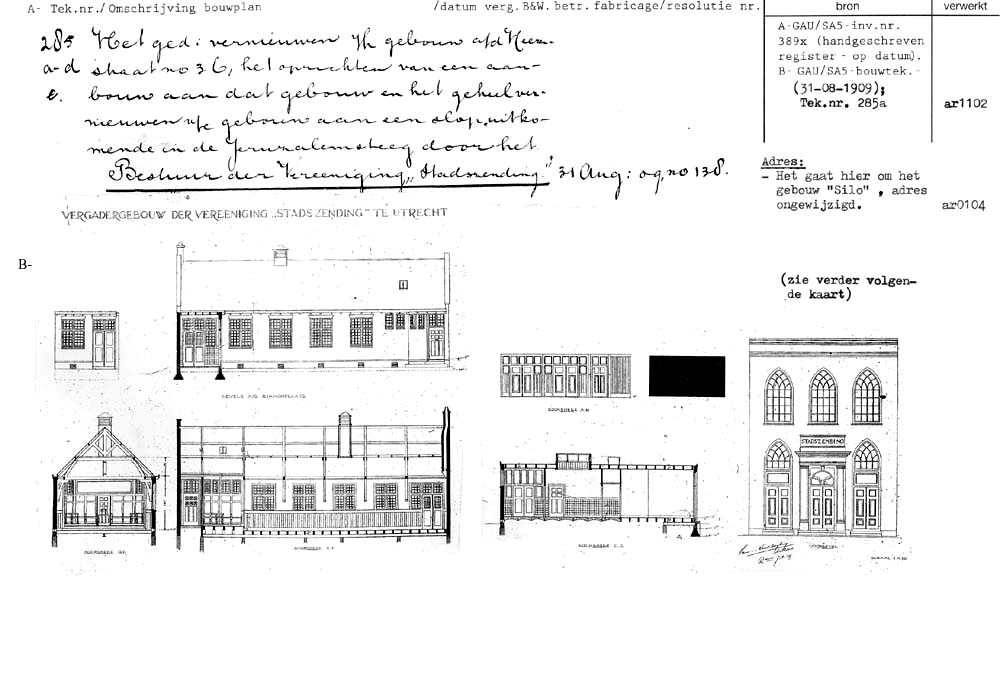 A- Tek.nr./Omschrijving bouwplan /datum verg.B&W.betr.fabricage/resolutie nr.
bron
verwerkt
285 Het ged: vernieuwen v/h gebouw a/d Heeren-
a-d straat no 36, het oprichten van een aan-
e. bouw aan dat gebouw en het geheel ver-
nieuwen v/e gebouw aan een slop, uitko-
mende in de Jeruzalemsteeg door het
Bestuur der Vereeniging „Stadszending." 31 Aug: 09 no 138.
A-GAU/SA5-inv.nr.
389x (handgeschreven
register - op datum).
B- GAU/SA5-bouwtek.-
(31-08-1909);
Tek.nr. 285a
ar1102
Adres:
- Het gaat hier om het
gebouw "Silo" , adres
ongewijzigd.
ar0104
VERGADERGEBOUW DER VEREENIGING „STADSZENDING" TE UTRECHT
B-
(zie verder volgen-
de kaart)
GEVELS A/D BINNENPLAATS
DOORSNEDE A.B
STADSZENDING
DOORSNEDE G.H.
DOORSNEDE E.F
DOORSNEDE C.D
VOORGEVEL